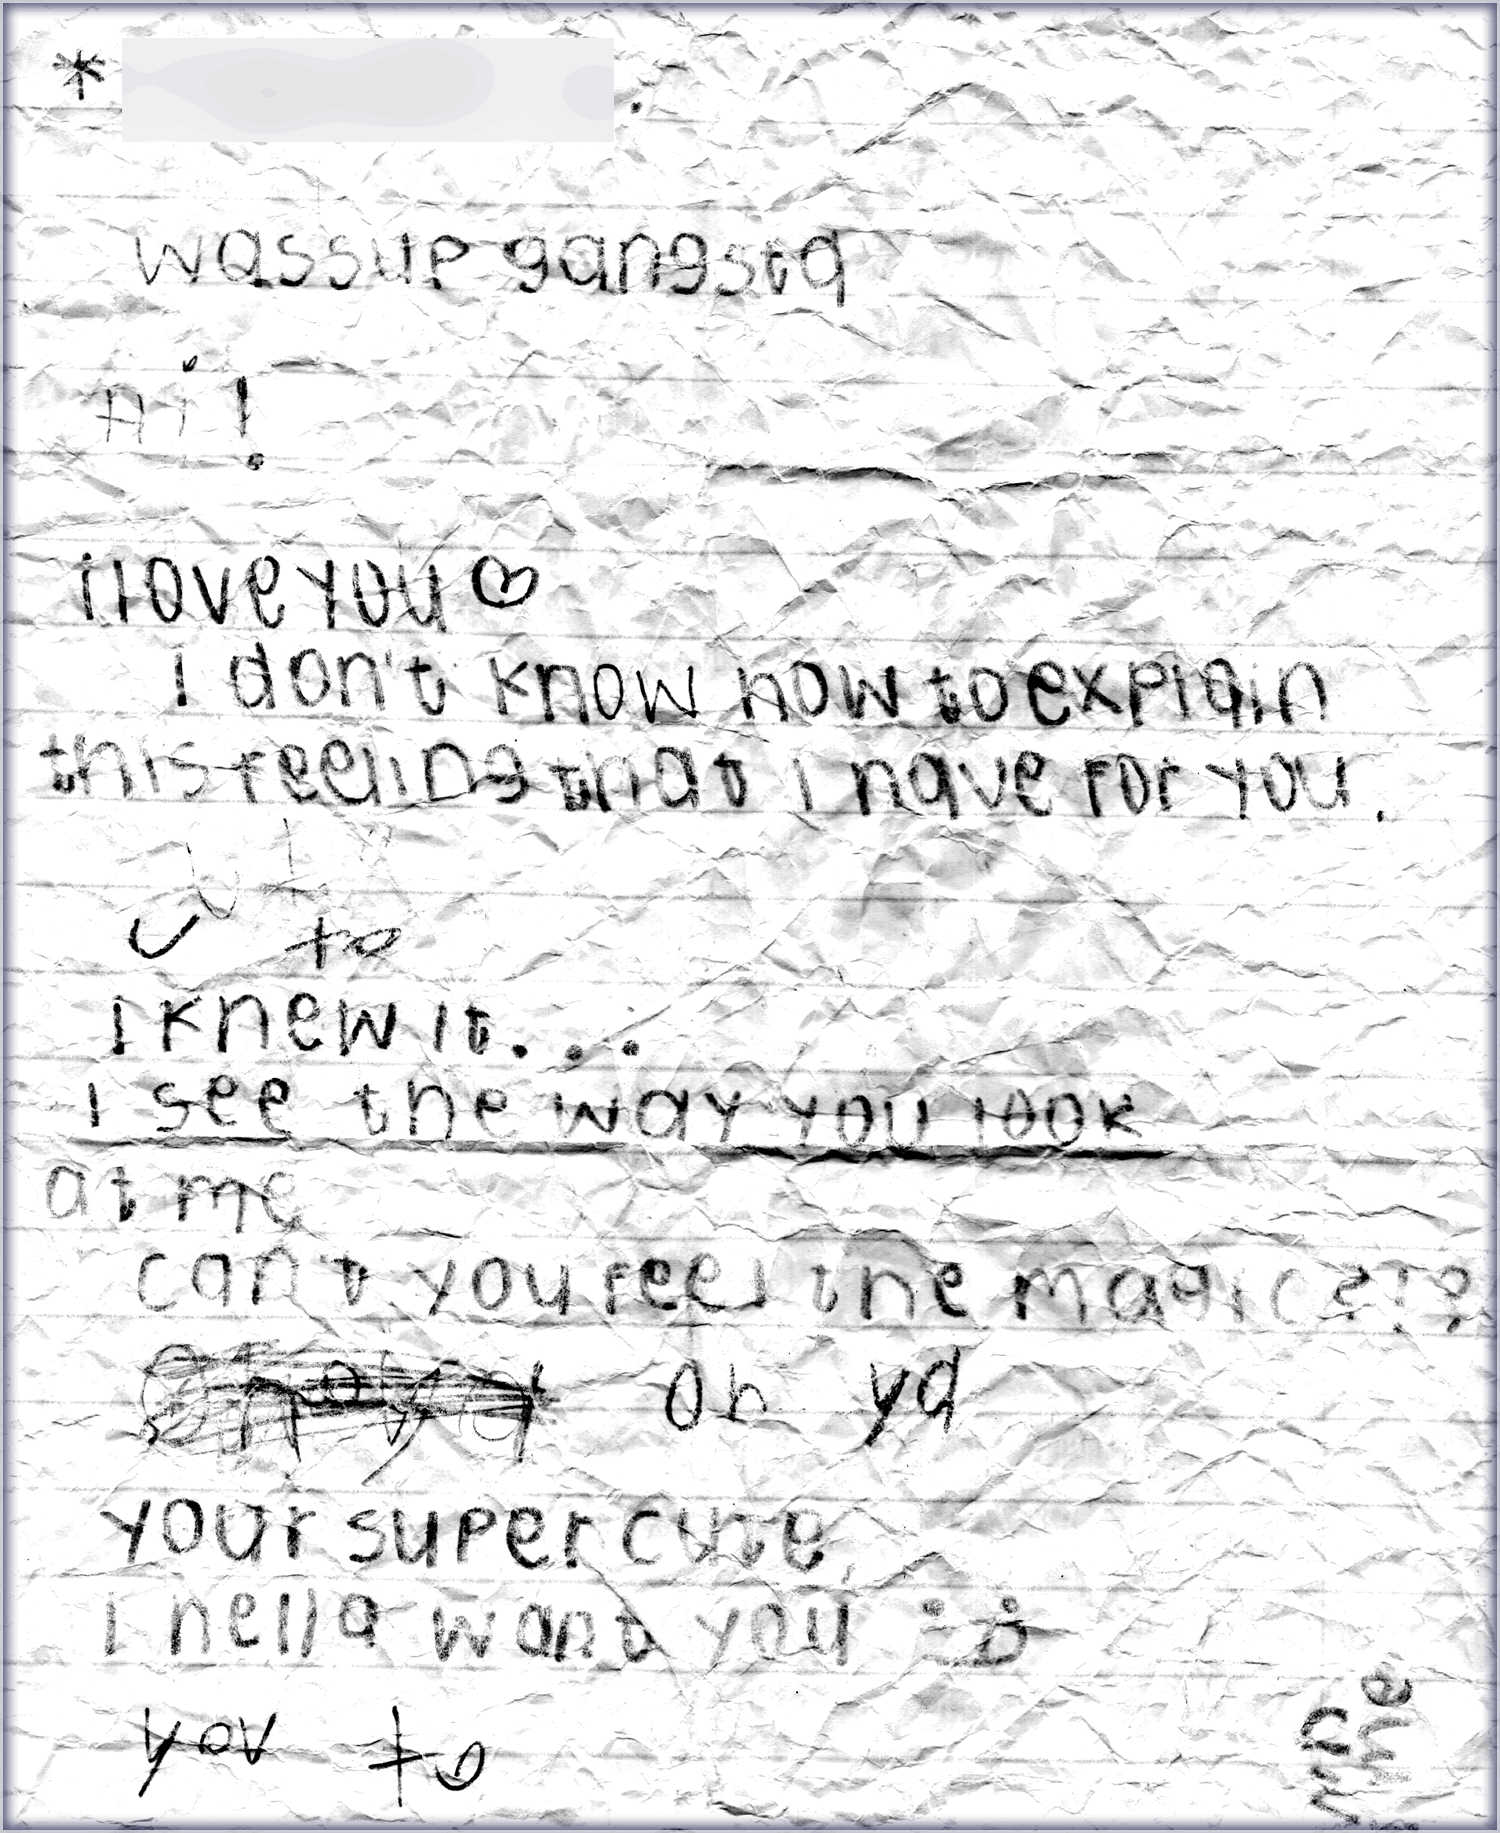 *
wassup gangsta
Hi!
i love you ♡
i don't know how to explain
this feeling that i have for you.
U to
i knew it...
i see the way you look
at me
can't you feel the magic?!?
oh ya
your super cute,
i hella want you :)
you to